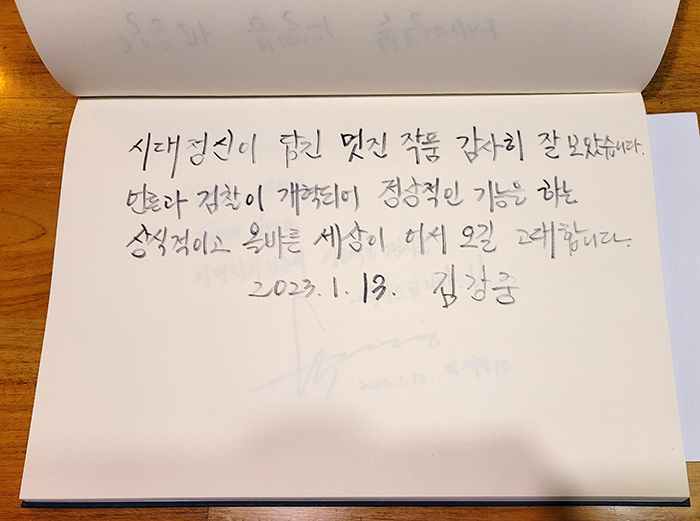 시대정신이 담긴 멋진 작품 감사히 잘 보았습니다.
언론과 검찰이 개혁되어 정상적인 기능을 하는
상식적이고 올바른 세상이 어서 오길 고대합니다.
2023.1.13. 김강중